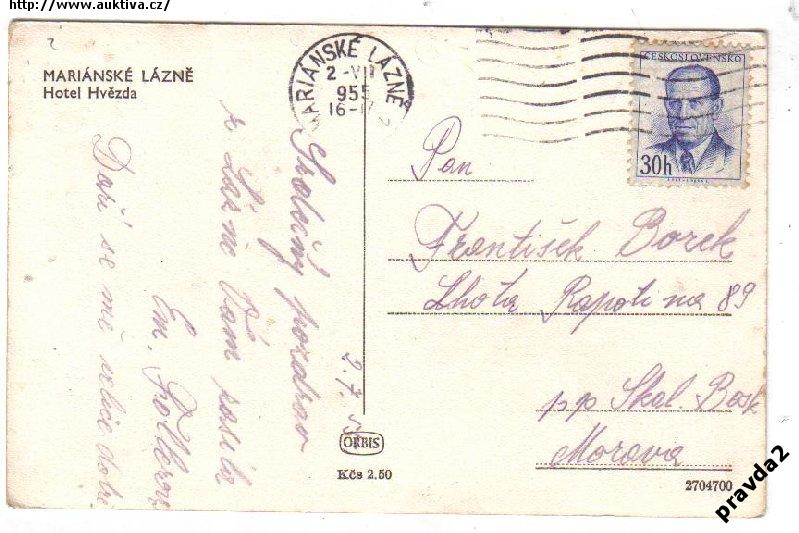 http://www.auktiva.cz/
MARIÁNSKÉ LÁZNĚ
Hotel Hvězda
MARIÁNSKÉ LÁZNĚ 2
2-VII
955
16-17
ČESKOSLOVENSKO
30h
Srdečný pozdrav
z Lázní Vám posílá
Em.
Daří se mi velice dobře
2.7.55
Pan
František Borek
Lhota Rapotina 89
p.p Skal. Bosk
Morava
ORBIS
Kčs 2.50
2704700
pravda2